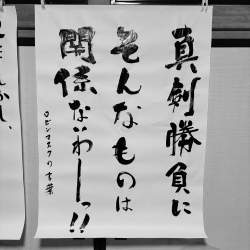 真剣勝負に
そんなものは
関係ないわーっ!!
ロビンマスクの言葉